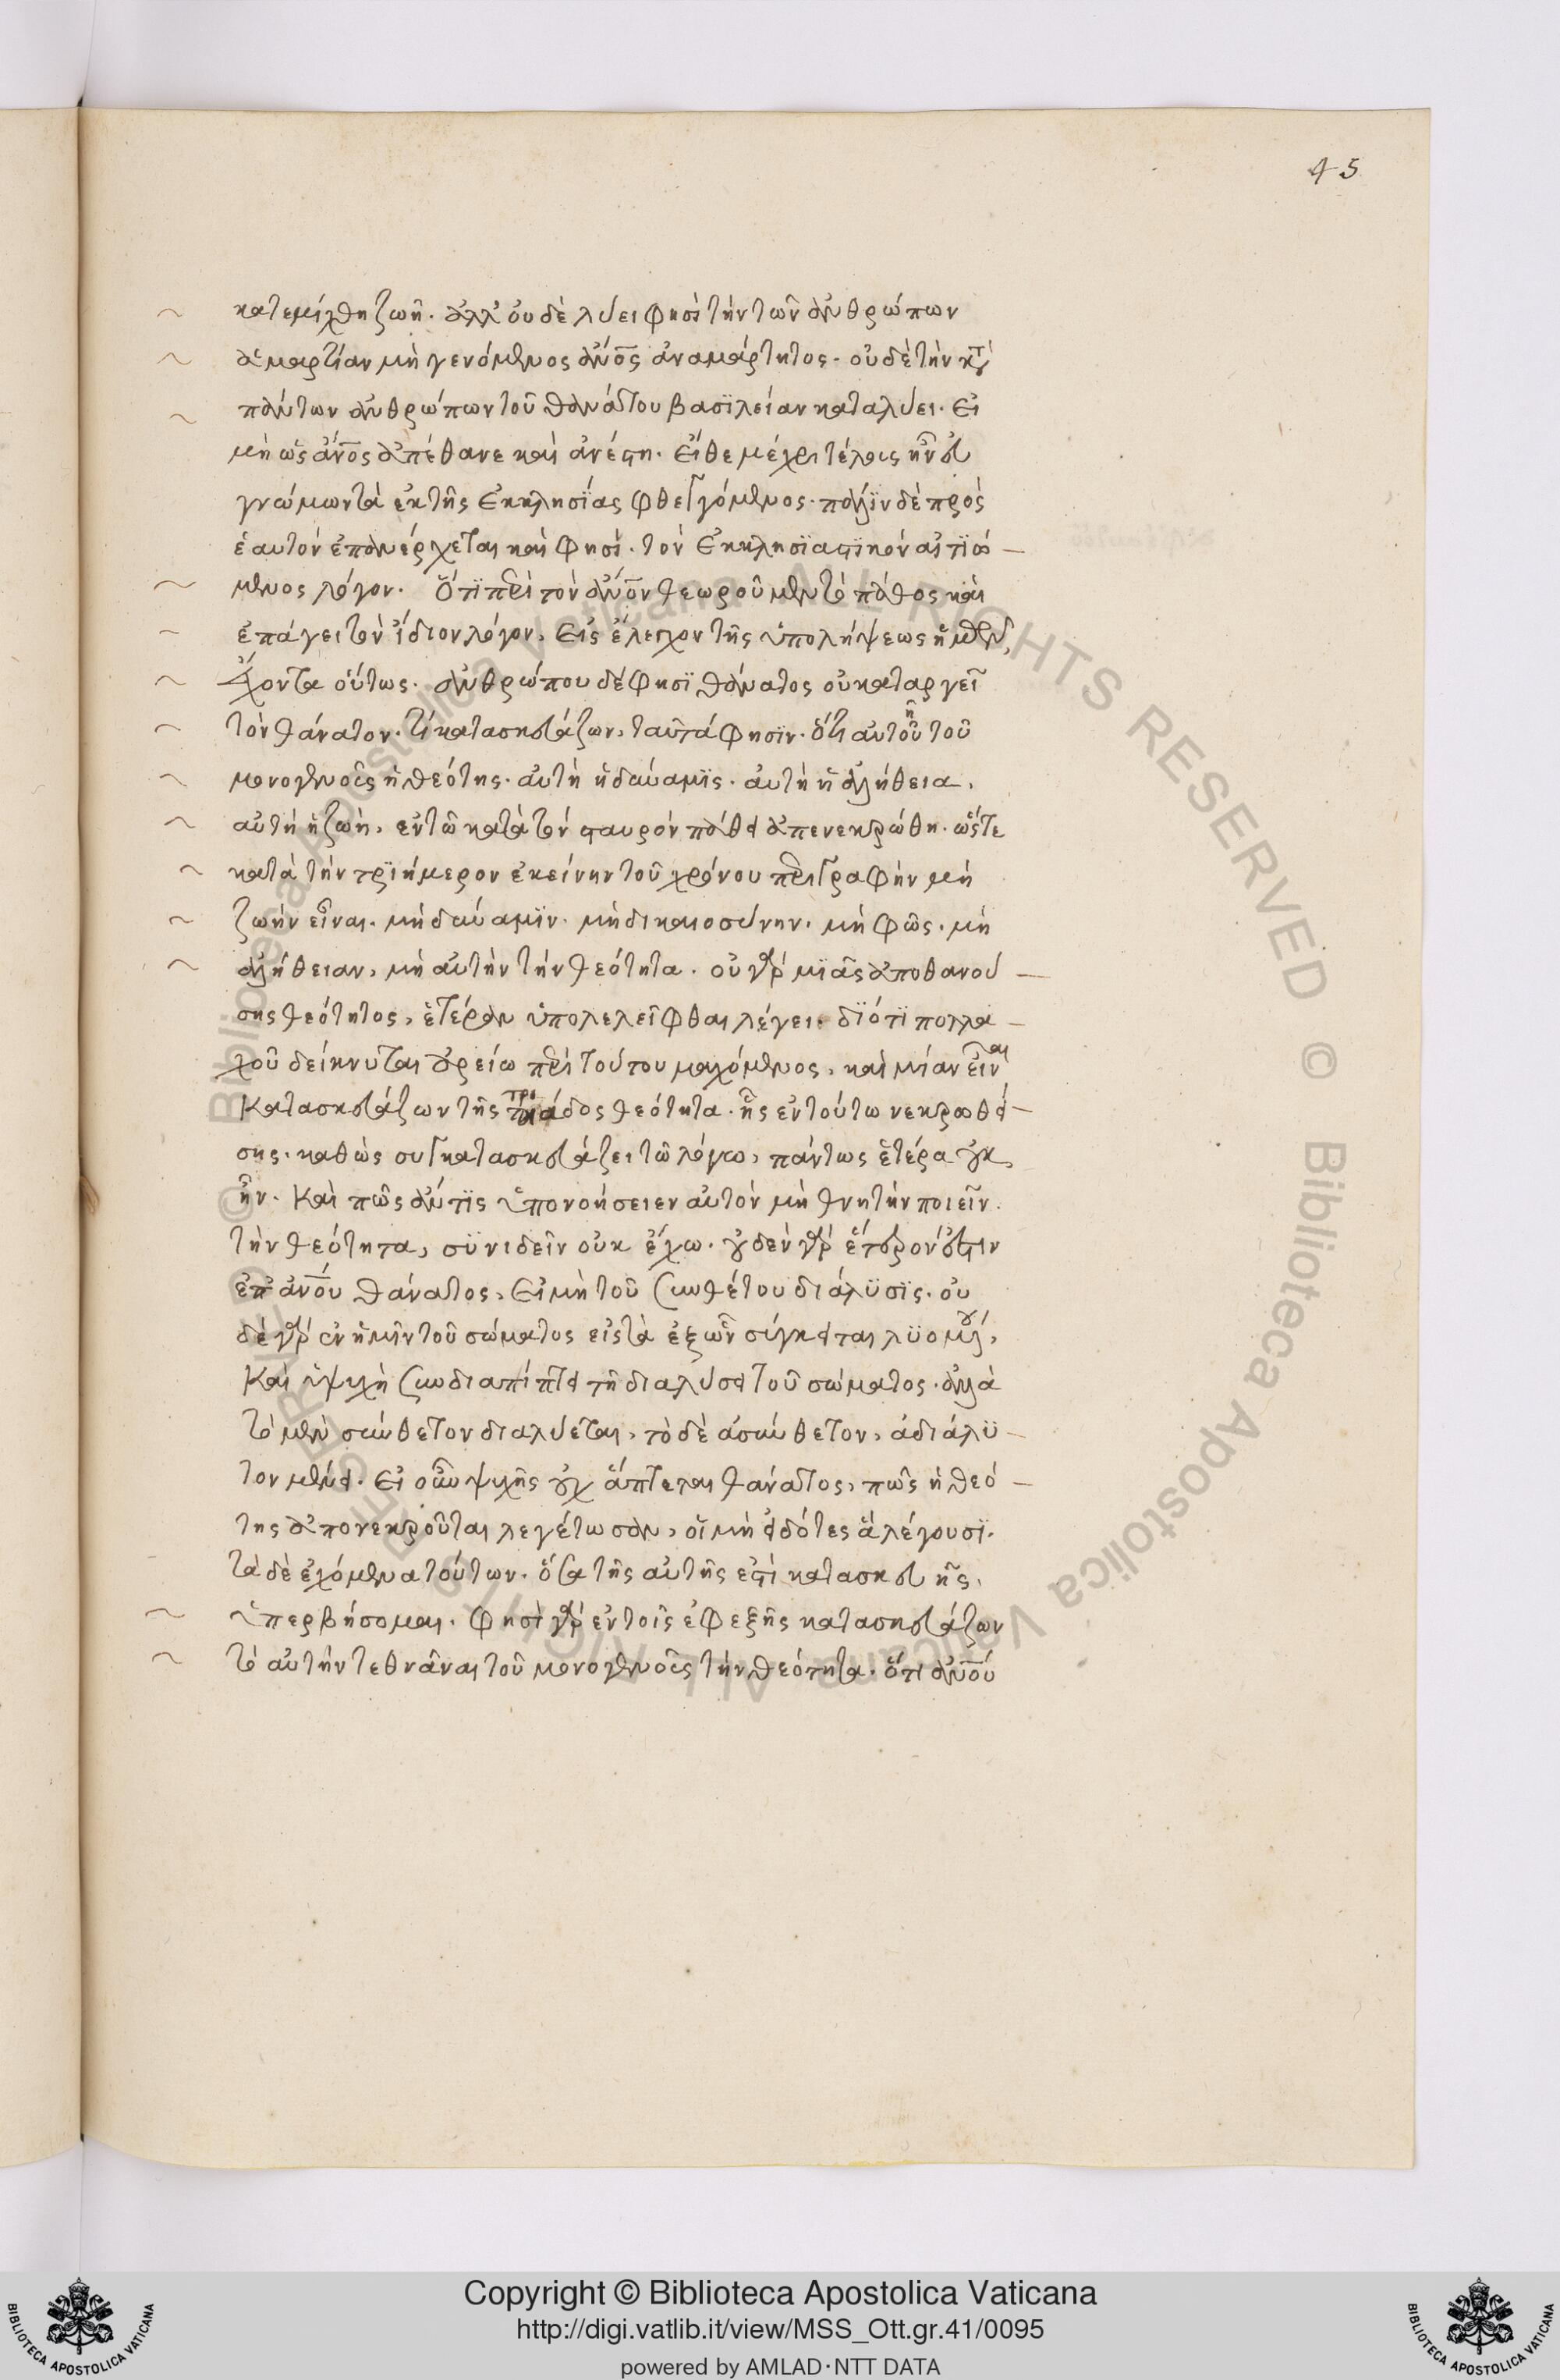 45
κατεμίχθη ζωῆ. ἀλλ' οὐδὲ λύει φησὶ τὴν τῶν ἀνθρώπων
ἁμαρτίαν μὴ γενόμενος ἄνος ἀναμάρτητος. οὐδὲ τὴν κατὰ
πάντων ἀνθρώπων τοῦ θανάτου βασϊλείαν καταλύει. Εἰ
μὴ ὡς ἄνος ἀπέθανε καὶ ἀνέστη. Εἴθε μέχρι τέλους ἦν εὐ
γνώμων τὰ ἐκ τῆς Ἐκκλησΐας φθεγγόμενος. πάλϊν δὲ πρὸς
ἑαυτὸν ἐπανέρχεται καὶ φησί. τὸν Ἐκκλησϊαστϊκὸν αἰτϊώ
μενος λόγον. Ὅτϊ περὶ τὸν ἄνον θεωροῦμεν τὸ πάθος καὶ
ἐπάγει τὸν ἴδιον λόγον, Εἰς ἔλεγχον τῆς ὑπολήψεως ἡμῶν,
ἔχοντα οὕτως. ἀνθρώπου δέ φησϊ θάνατος οὐ καταργεῖ
τὸν θάνατον. τί κατασκευάζων, ταῦτά φησϊν. ὅτι αὐτοῦ ἡ τοῦ
μονογενοῦς ἡ θεότης. αὐτὴ ἡ δύναμϊς. αὐτὴ ἡ ἀλήθεια,
αὐτὴ ἡ ζωὴ, ἐν τῶ κατὰ τὸν σταυρὸν πάθει ἀπενεκρώθη. ὥστε
κατὰ τὴν τρϊήμερον ἐκείνην τοῦ χρόνου περιγραφὴν μὴ
ζωὴν εἶναι. μὴ δύναμϊν. μὴ δικαιοσύνην. μὴ φῶς. μὴ
ἀλήθειαν, μὴ αὐτὴν τὴν θεότητα. οὐ γὰρ μϊᾶς ἀποθανού
σης θεότητος, ἑτέραν ὑπολελεῖφθαι λέγει. δϊότϊ πολλα
χοῦ δείκνυται ἀρείω περὶ τούτου μαχόμενος, καὶ μίαν εἶναι
Κατασκευάζων τῆς τριάδος θεότητα. ἧς ἐν τούτω νεκρωθεί
σης. καθὼς συγκατασκευάζει τῶ λόγω, πάντως ἑτέρα οὐκ
ἦν. Καὶ πῶς ἄν τϊς ὑπονοήσειεν αὐτὸν μὴ θνητὴν ποιεῖν.
τὴν θεότητα, συνιδεῖν οὐκ ἔχω. οὐδὲν γὰρ ἕτερόν ἐστιν
ἐπ' ἀνού θάνατος, Εἰ μὴ τοῦ συνθέτου διάλϋσϊς. οὐ
δὲ γὰρ ἐν ἡμῖν τοῦ σώματος εἰς τὰ ἐξ ὧν σύγκειται λϋομένου,
Καὶ ἡ ψυχὴ συνδιαπίπτει τῆ διαλύσει τοῦ σώματος. ἀλλὰ
τὸ μὲν σύνθετον διαλύεται, τὸ δὲ ἀσύνθετον, ἀδιάλϋ
τον μένει. Εἰ οὖν ψυχῆς οὐχ ἅπτεται θάνατος, πῶς ἡ θεό
της ἀπονεκροῦται λεγέτωσαν, οἱ μὴ εἰδότες ἃ λέγουσϊ.
τὰ δὲ ἐχόμενα τούτων. ὅσα τῆς αὐτῆς ἐστὶ κατασκευῆς,
ὑπερβήσομαι. Φησὶ γὰρ ἐν τοῖς ἐφεξῆς κατασκευάζων
τὸ αὐτὴν τεθνᾶναι τοῦ μονογενοῦς τὴν θεότητα. ὅτι ἀνού
© Biblioteca Apostolica Vaticana ALL RIGHTS RESERVED © Biblioteca Apostolica Vaticana ALL RIGHTS RESERVED
BIBLIOTECA APOSTOLICA VATICANA
Copyright © Biblioteca Apostolica Vaticana
http://digi.vatlib.it/view/MSS_Ott.gr.41/0095
powered by AMLAD·NTT DATA
BIBLIOTECA APOSTOLICA VATICANA